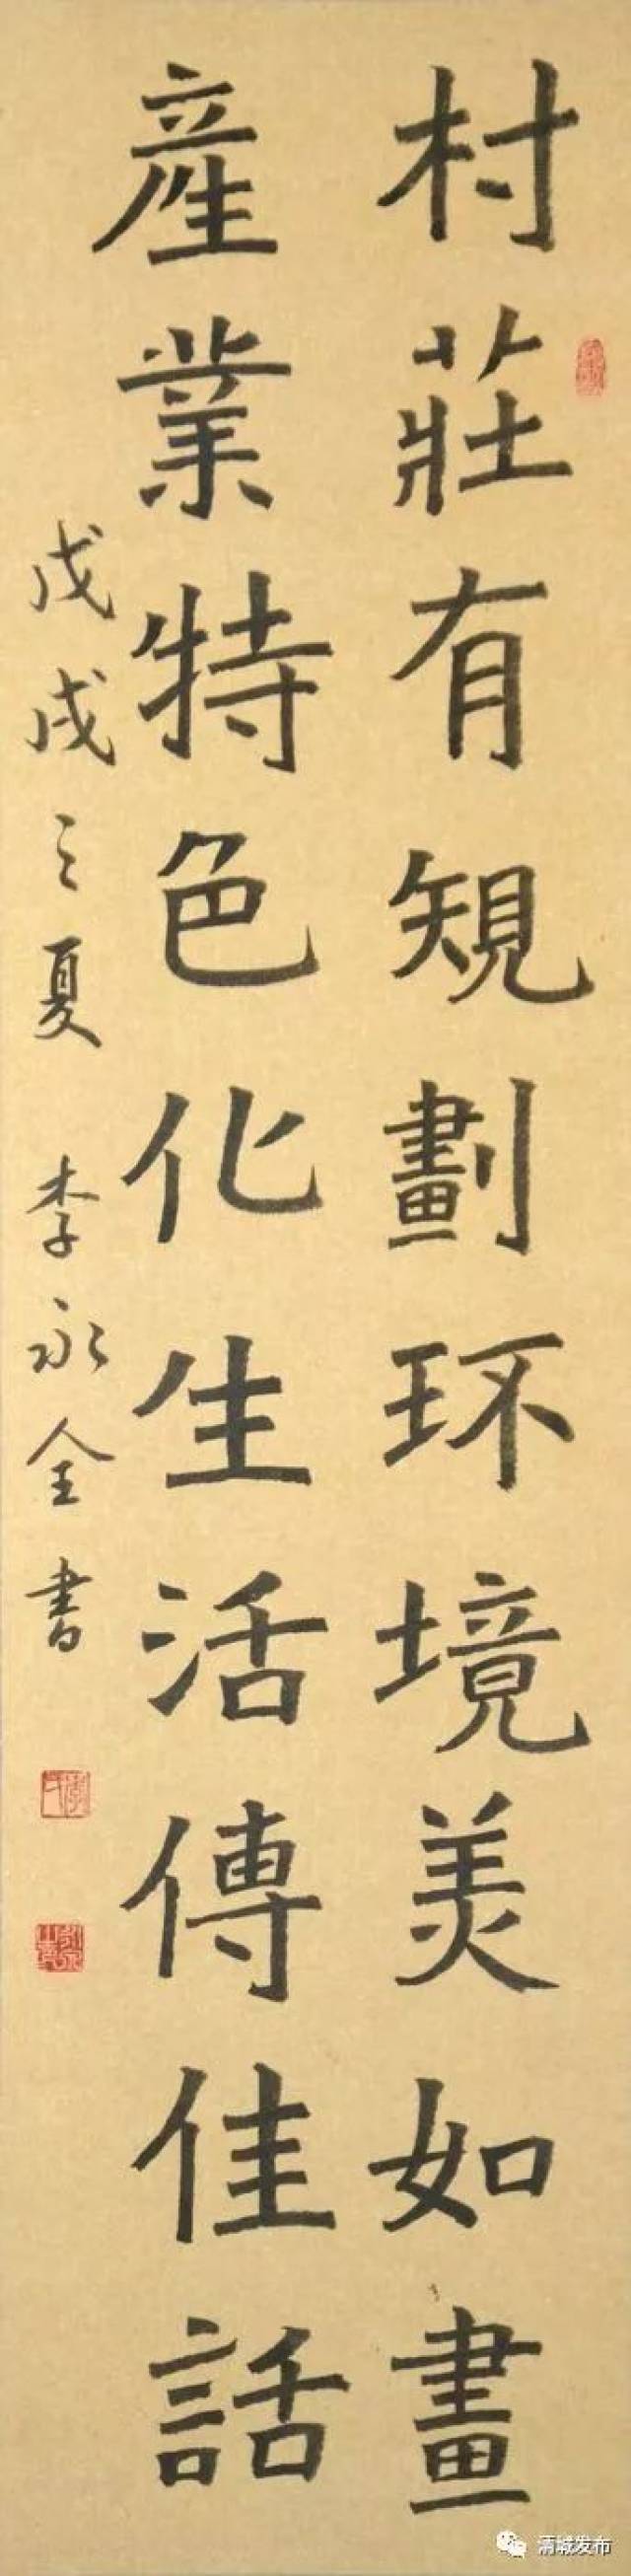 村莊有規劃环境美如畫
產業特色化生活傳佳話
戊戌之夏 李永全書
清城发布